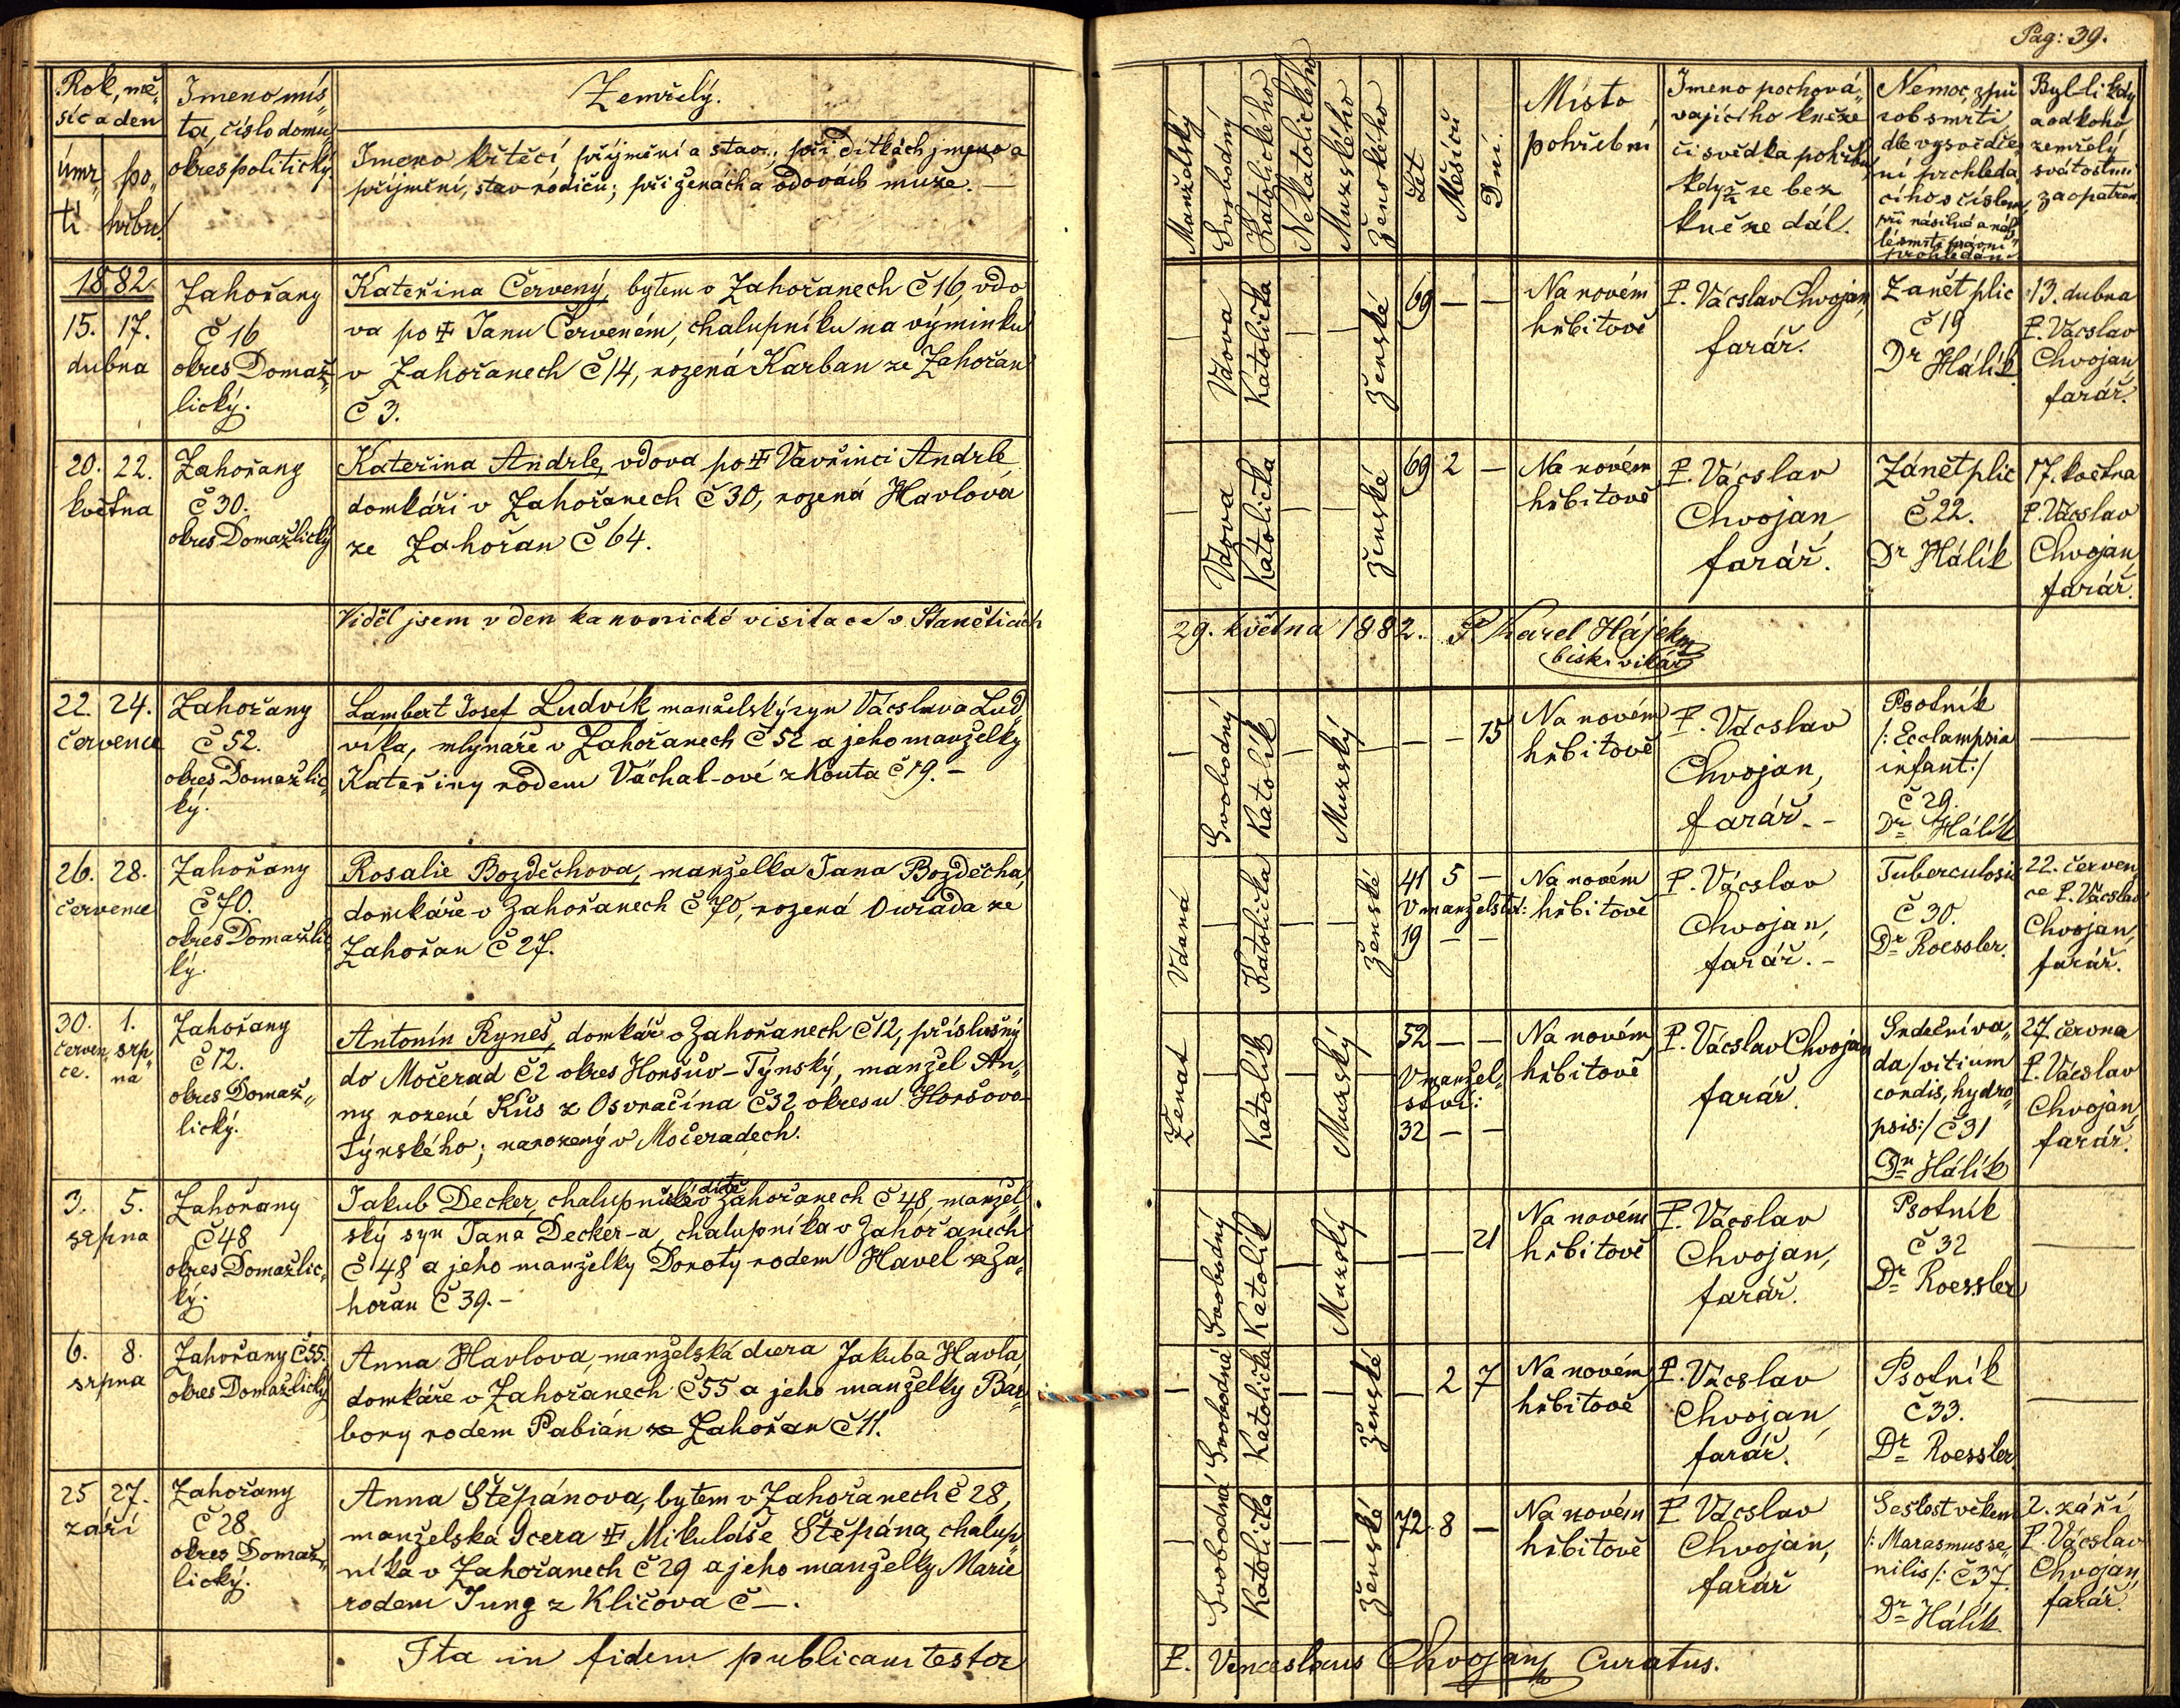 Pag: 39.
Rok, mě„
síc a den
úmr„
tí
po„
hřbu.
Jmeno mís„
ta, číslo domu
okres politický
Zemřelý.
Jmeno křtěcí příjmění a stav; při dítkách jmeno a
příjmění, stav rodičů; při ženách a vdovách muže. —
Manželský
Svobodný
Katolického
Nekatolického
Mužského
Ženského
Let
Měsíců
Dní.
Místo
pohřební
Jmeno pochová„
vajícího kněze
či svědka pohřbu,
když se bez
kněze dál.
Nemoc, způ
sob smrti
dle vysvědče„
ní prohleda„
cího s číslem,
při násilné a náh„
lé smrti právní
prohledání
Byl-li kdy
a od koho
zemřelý
svátostmi
zaopatřen
1882
15. 17.
dubna
Zahořany
č 16
okres Domaž„
lický.
Kateřina Červený, bytem v Zahořanech č 16, vdo
va po Janu Červeném, chalupníku na výminku
v Zahořanech č 14, rozená Karban ze Zahořan
č 3.
— Vdova Katolička — — Ženské
69 — —
Na novém
hřbitově
P. Vácslav Chvojan,
farář.
Zánět plic
č 19
Dr Hálík
13. dubna
P. Vácslav
Chvojan,
farář.
20. 22.
května
Zahořany
č 30.
okres Domažlický
Kateřina Andrle, vdova po Vavřinci Andrle
domkáři v Zahořanech č 30, rozená Havlová
ze Zahořan č 64.
— Vdova Katolička — — Ženské
69 2 —
Na novém
hřbitově
P. Vácslav
Chvojan,
farář.
Zánět plic
č 22.
Dr Hálík
17. května
P. Vácslav
Chvojan,
farář.
Viděl jsem v den kanonické visitace v Staněticích
29. května 1882. P. Karel Hájek
bisk. vikář
22. 24.
července
Zahořany
č 52.
okres Domažlic„
ký.
Lambert Josef Ludvík manželský syn Vácslava Lud„
víka, mlynáře v Zahořanech č 52 a jeho manželky
Kateřiny rodem Váchal-ové z Kouta č 19. —
— Svobodný Katolík — Mužský —
— — 15
Na novém
hřbitově
P. Vácslav
Chvojan,
farář. –
Psotník
/: Ecclampsia
infant:/
č 29.
Dr Hálík
—
26. 28.
července
Zahořany
č 70.
okres Domažlic„
ký.
Rosalie Bozděchova, manželka Jana Bozděcha,
domkáře v Zahořanech č 70, rozená Ouřada ze
Zahořan č 27.
Vdaná — Katolička — — Ženské
41 5 —
V manželství:
19 — —
Na novém
hřbitově
P. Vácslav
Chvojan,
farář. –
Tuberculosis
č 30.
Dr Roessler.
22. červen„
ce P. Vácslav
Chvojan,
farář.
30. 1.
červen„ srp„
ce. na
Zahořany
č 12.
okres Domaž„
lický.
Antonín Ryneš, domkář v Zahořanech č 12, příslušný
do Močerad č 2 okres Horšův-Týnský, manžel An„
ny rozené Kůs z Osvračína č 32 okresu Horšovo-
Týnského; narozený v Močeradech.
Ženat — Katolík — Mužský —
52 — —
V manžel„
ství:
32 — —
Na novém
hřbitově
P. Vácslav Chvojan
farář.
Srdeční va„
da /vitium
cordis, hydro„
psis:/ č 31
Dr Hálík
27 června
P. Vácslav
Chvojan,
farář.
3. 5.
srpna
Zahořany
č 48
okres Domažlic„
ký.
dítě
Jakub Decker, chalupnické v Zahořanech č 48, manžel„
ský syn Jana Decker-a, chalupníka v Zahořanech
č 48 a jeho manželky Doroty rodem Havel ze Za„
hořan č 39. –
— Svobodný Katolík — Mužský —
— — 21
Na novém
hřbitově
P. Vácslav
Chvojan,
farář.
Psotník
č 32
Dr Roessler
—
6. 8.
srpna
Zahořany č 55.
okres Domažlický
Anna Havlova, manželská dcera Jakuba Havla,
domkáře v Zahořanech č 55 a jeho manželky Bar„
bory rodem Pabián ze Zahořan č 11.
— Svobodná Katolička — — Ženské
— 2 7
Na novém
hřbitově
P. Vácslav
Chvojan,
farář.
Psotník
č 33.
Dr Roessler.
—
25 27.
září
Zahořany
č 28
okres Domaž„
lický.
Anna Štěpánova, bytem v Zahořanech č 28,
manželská dcera Mikuláše Štěpána, chalup„
níka v Zahořanech č 29 a jeho manželky Marie
rodem Jung z Klíčova č —.
— Svobodná Katolička — — Ženské
72 8 —
Na novém
hřbitově
P Vácslav
Chvojan,
farář
Sešlost věkem
/: Marasmus se„
nilis /: č 37.
Dr Hálík
2. září
P. Vácslav
Chvojan,
farář.
Ita in fidem publicam testor
P. Venceslaus Chvojan Curatus.